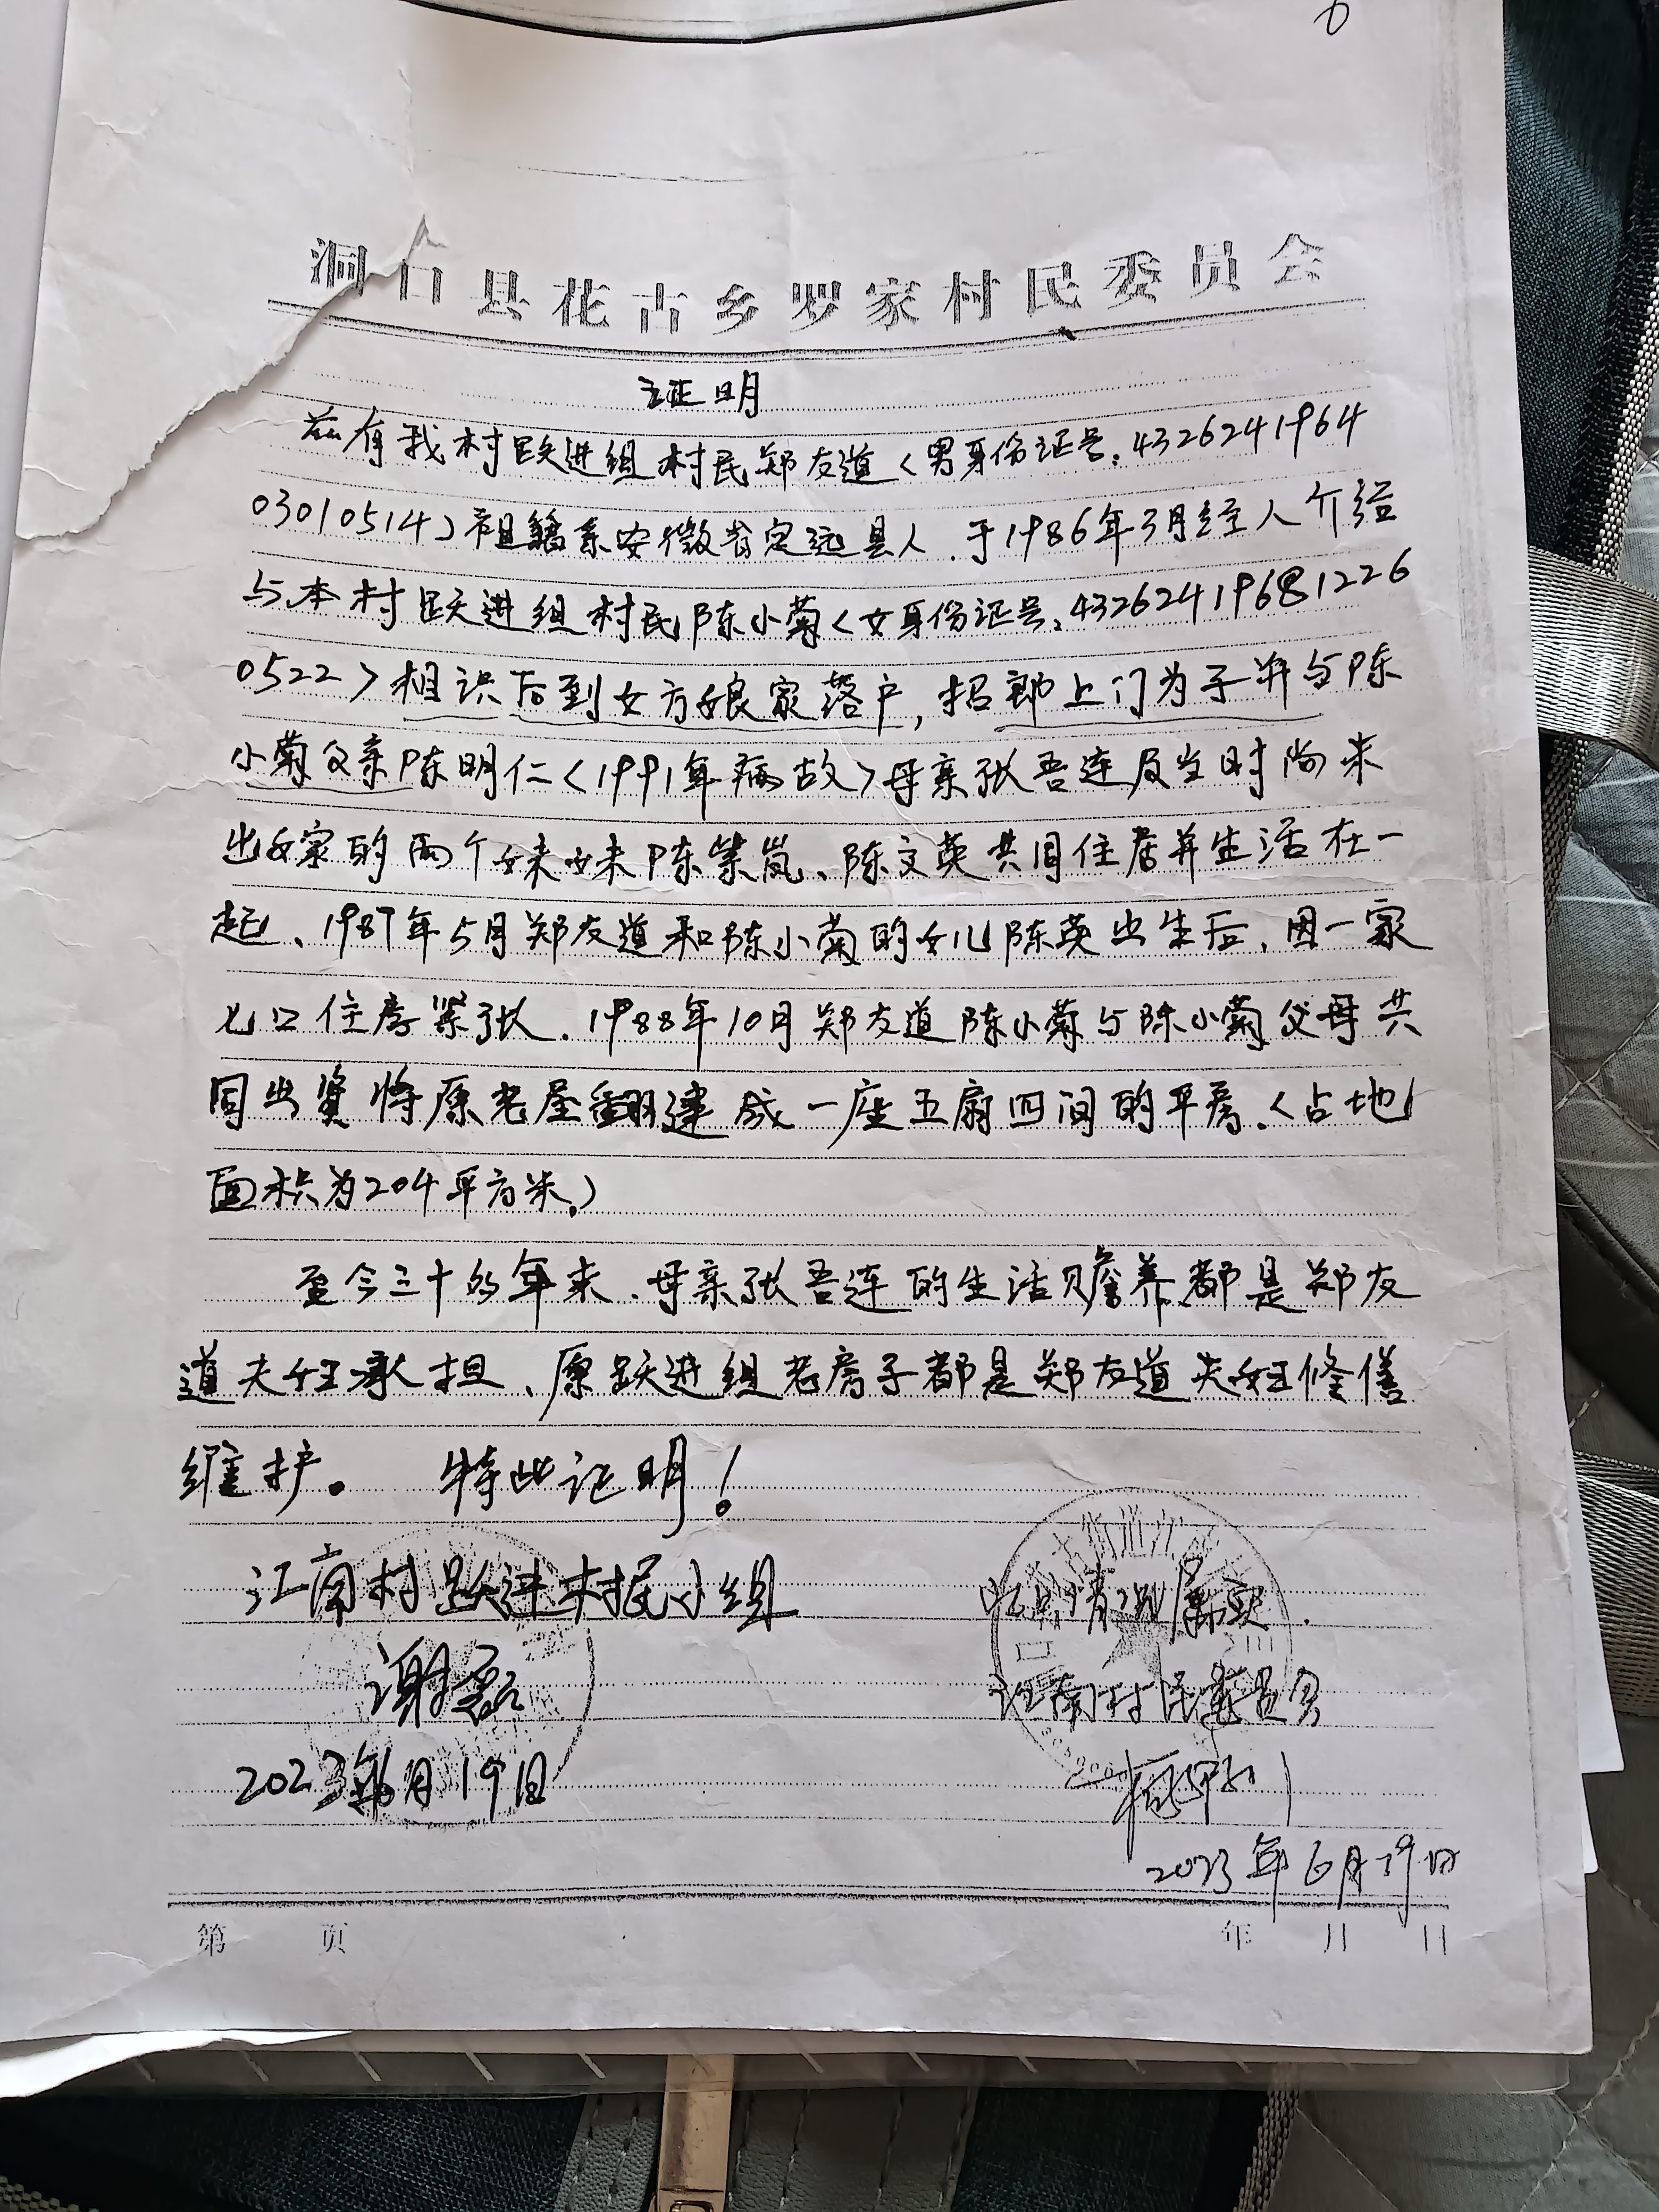 洞口县花古乡罗家村民委员会
证明
兹有我村跃进组村民郑友道〈男身份证号:4326241964
03010514〉祖籍系安徽省定远县人.于1986年3月经人介绍
与本村跃进组村民陈小菊〈女身份证号:43262419681226
0522〉相识后到女方娘家落户,招郎上门为子并与陈
小菊父亲陈明仁〈1991年病故〉母亲张吾连及当时尚未
出嫁的两个妹妹陈紫岚、陈文英共同住居并生活在一
起、1987年5月郑友道和陈小菊的女儿陈英出生后、因一家
七口住房紧张.1988年10月郑友道陈小菊与陈小菊父母共
同出资将原老屋翻建成一座五扇四间的平房.〈占地
面积为204平方米.)
至今三十多年来.母亲张吾连的生活赡养都是郑友
道夫妇承担、原跃进组老房子都是郑友道夫妇修缮
维护。 特此证明!
江南村跃进村民小组
情况属实.
谢磊
江南村民委员会
2023年6月19日
2023年6月19日
第 页 年 月 日